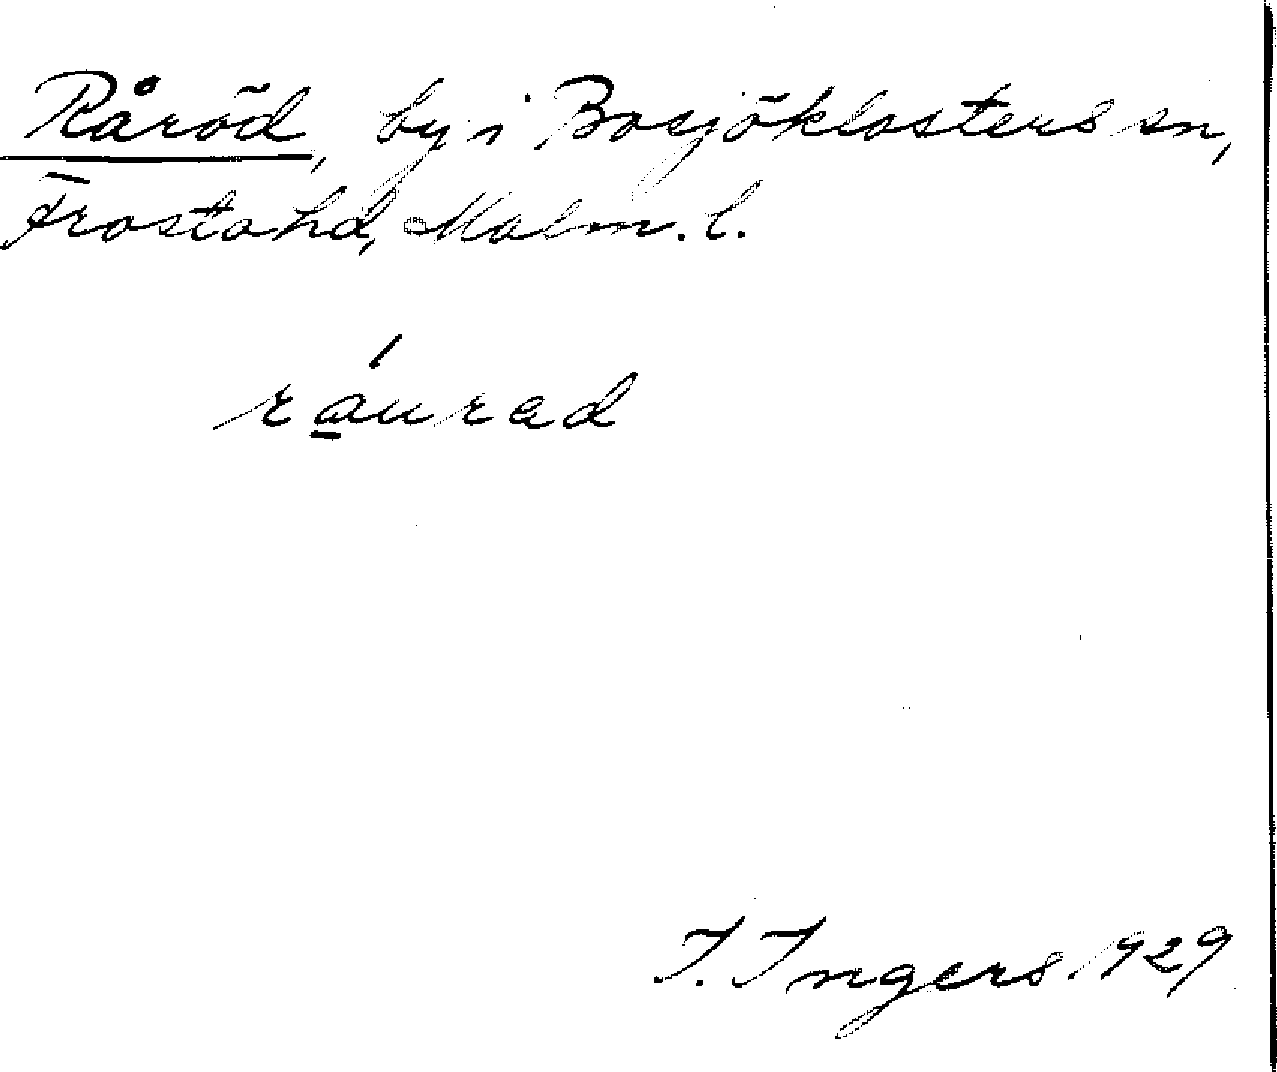 Råröd, by i Bosjöklosters sn,
Frosta hd, Malm. l.
ráu̱rad
I. Ingers 1929